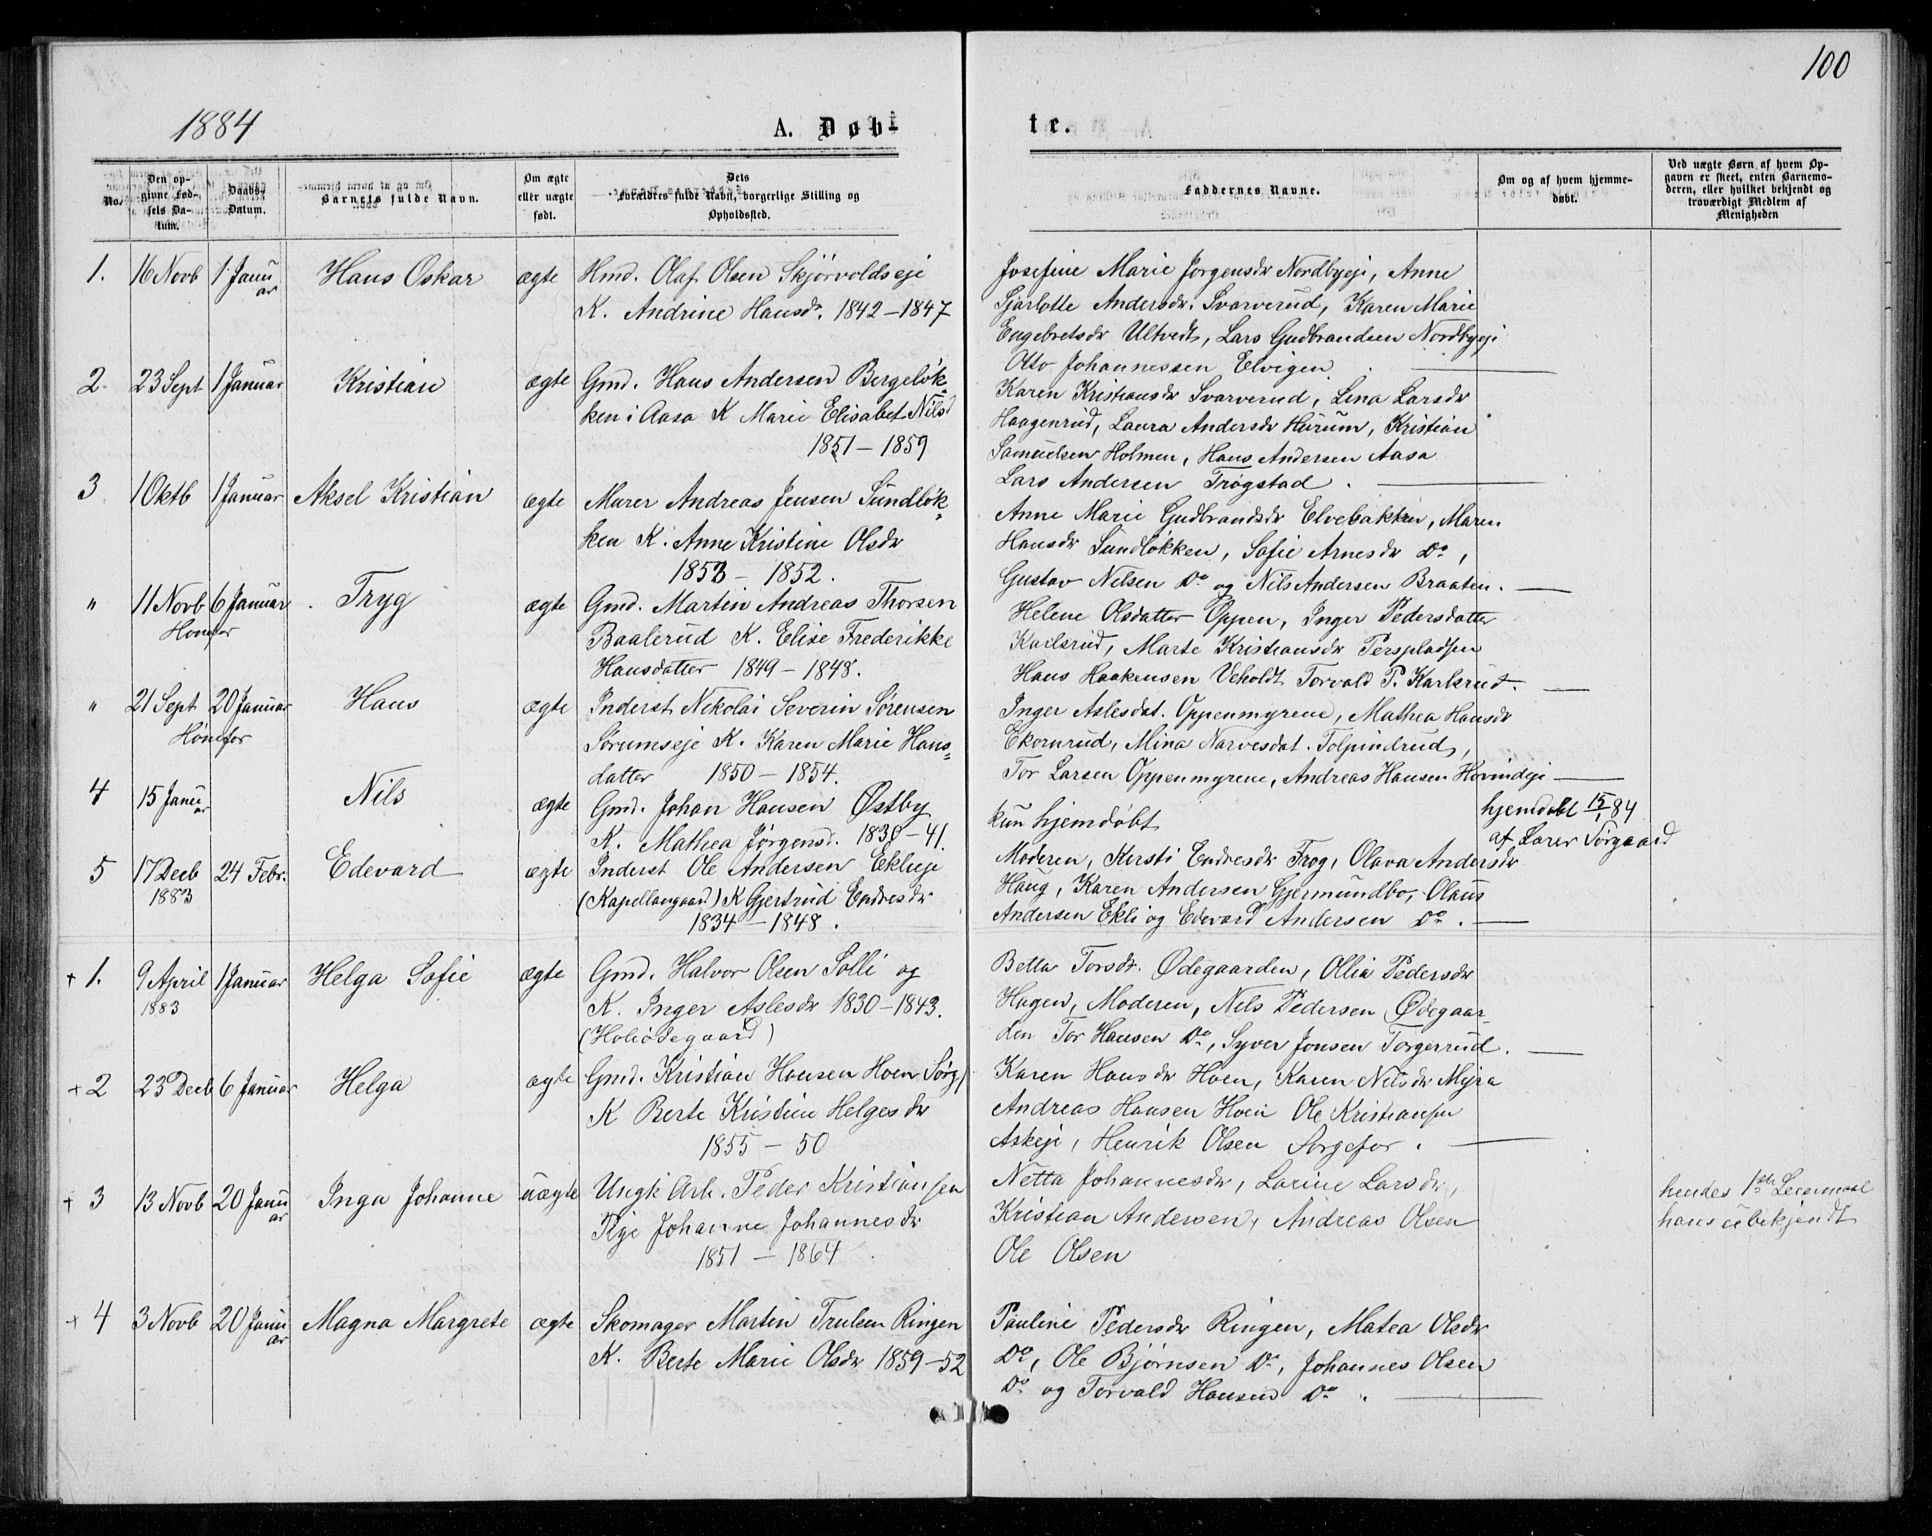 100
1884
A. Døbte.
No.
Den opgivne Fødsels Datum.
Daabs-Datum.
Barnets fulde Navn.
Om ægte eller uægte født.
Dets Forældres fulde Navn, borgerlige Stilling og Opholdssted.
Faddernes Navne.
Om og af hvem hjemmedøbt.
Ved uægte Børn af hvem Opgaven er skeet, enten Barnemoderen, eller hvilket bekjendt og troværdigt Medlem af Menigheden
1. 16 Novb 1 Januar Hans Oskar ægte Hmd. Olaf Olsen Skjørvoldseje
K. Andrine Hansd. 1842-1847
Josefine Marie Jørgensdr Nordbyeje, Anne
Sjarlotte Andersdr. Svarverud, Karen Marie
Engebretsdr Ultvedt, Lars Gudbrandsen Nordbyeje
Otto Johannessen Elvigen.
2. 23 Sept 1 Januar Kristian ægte Gmd. Hans Andersen Bergeløk-
ken i Aasa K Marie Elisabet Nilsd
1851-1859
Karen Kristiansdr Svarverud, Lina Larsdr
Haagenrud, Laura Andersdr Hurum, Kristian
Samuelsen Holmen, Hans Andersen Aasa
Lars Andersen Trøgstad.
3 1 Oktb 1 Januar Aksel Kristian ægte Murer Andreas Jensen Sundløk-
ken K. Anne Kristine Olsdr
1853-1852.
Anne Marie Gudbrandsdr Elvebakken, Maren
Hansdr Sundløkken, Sofie Arnesdr Do,
Gustav Nelsen Do og Nils Andersen Braaten.
" 11 Novb 6 Januar Tryg ægte Gmd. Martin Andreas Thorsen
Hønefos
Baalerud K. Elise Frederikke
Hansdatter 1849-1848.
Helene Olsdatter Oppen, Inger Pedersdatter
Karlsrud, Marte Kristiansdr Perspladsen
Hans Haakensen Veholdt Torvald P. Karlsrud.
" 21 Sept 20 Januar Hans ægte Inderst Nikolai Severin Sørensen
Hønefos
Sørumseje K. Karen Marie Hans-
datter 1850-1854.
Inger Aslesdat. Oppenmyrene, Mathea Hansdr
Ekornrud, Mina Narvesdat. Tolpindrud,
Tor Larsen Oppenmyrene, Andreas Hansen Hovindeje
4 15 Januar Nils ægte Gmd. Johan Hansen Østby
K. Mathea Jørgensd. 1830-41.
kun hjemdøbt
hjemdøbt 15/1 84
af Lærer Sørgaard
5 17 Decb 24 Febr. Edevard ægte Inderst Ole Andersen Eklieje
1883
(Kapellangaard) K Gjertrud Endresdr
1834-1848.
Moderen, Kersti Endresdr Trøg, Olava Andersdr
Haug, Karen Andersen Gjermundbo, Olaus
Andersen Ekli og Edevard Andersen Do.
+ 1. 9 April 1 Januar Helga Sofie ægte Gmd. Halvor Olsen Solli og
1883
K. Inger Aslesdr 1830-1843.
(Holiødegaard)
Betta Torsdr. Ødegaarden, Ollia Pedersdr
Hagen, Moderen, Nels Pedersen Ødegaar-
den Tor Hansen Do, Syver Jonsen Torgerrud.
+ 2 23 Decb 6 Januar Helga ægte Gmd. Kristian Hansen Hoen Sørg
K Berte Kristine Helgesdr
1855-50
Karen Hansdr Hoen, Karen Nelsdr Myra
Andreas Hansen Hoen Ole Kristiansen
Askeje, Henrik Olsen Sorgefos.
+ 3 13 Novb 20 Januar Inga Johanne uægte Ungk Arb. Peder Kristiansen
Pige Johanne Johannesdr
1851-1864
Netta Johannesdr, Larine Larsdr,
Kristian Andersen, Andreas Olsen
Ole Olsen
hendes 1ste Leiermaal
hans ubekjendt
+ 4 3 Novb 20 Januar Magna Margrete ægte Skomager Martin Trulsen Ringen
K. Berte Marie Olsdr 1859-52
Pauline Pedersdr Ringen, Matea Olsdr
Do, Ole Bjørnsen Do, Johannes Olsen
Do og Torvald Hansen Do.